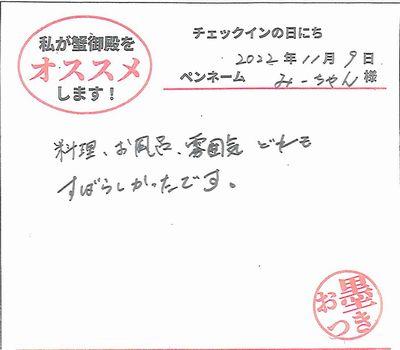 私が蟹御殿を
オススメ
します!
チェックインの日にち
2022年11月9日
ペンネーム みーちゃん 様
料理、お風呂、雰囲気 どれも
すばらしかったです。
お墨つき